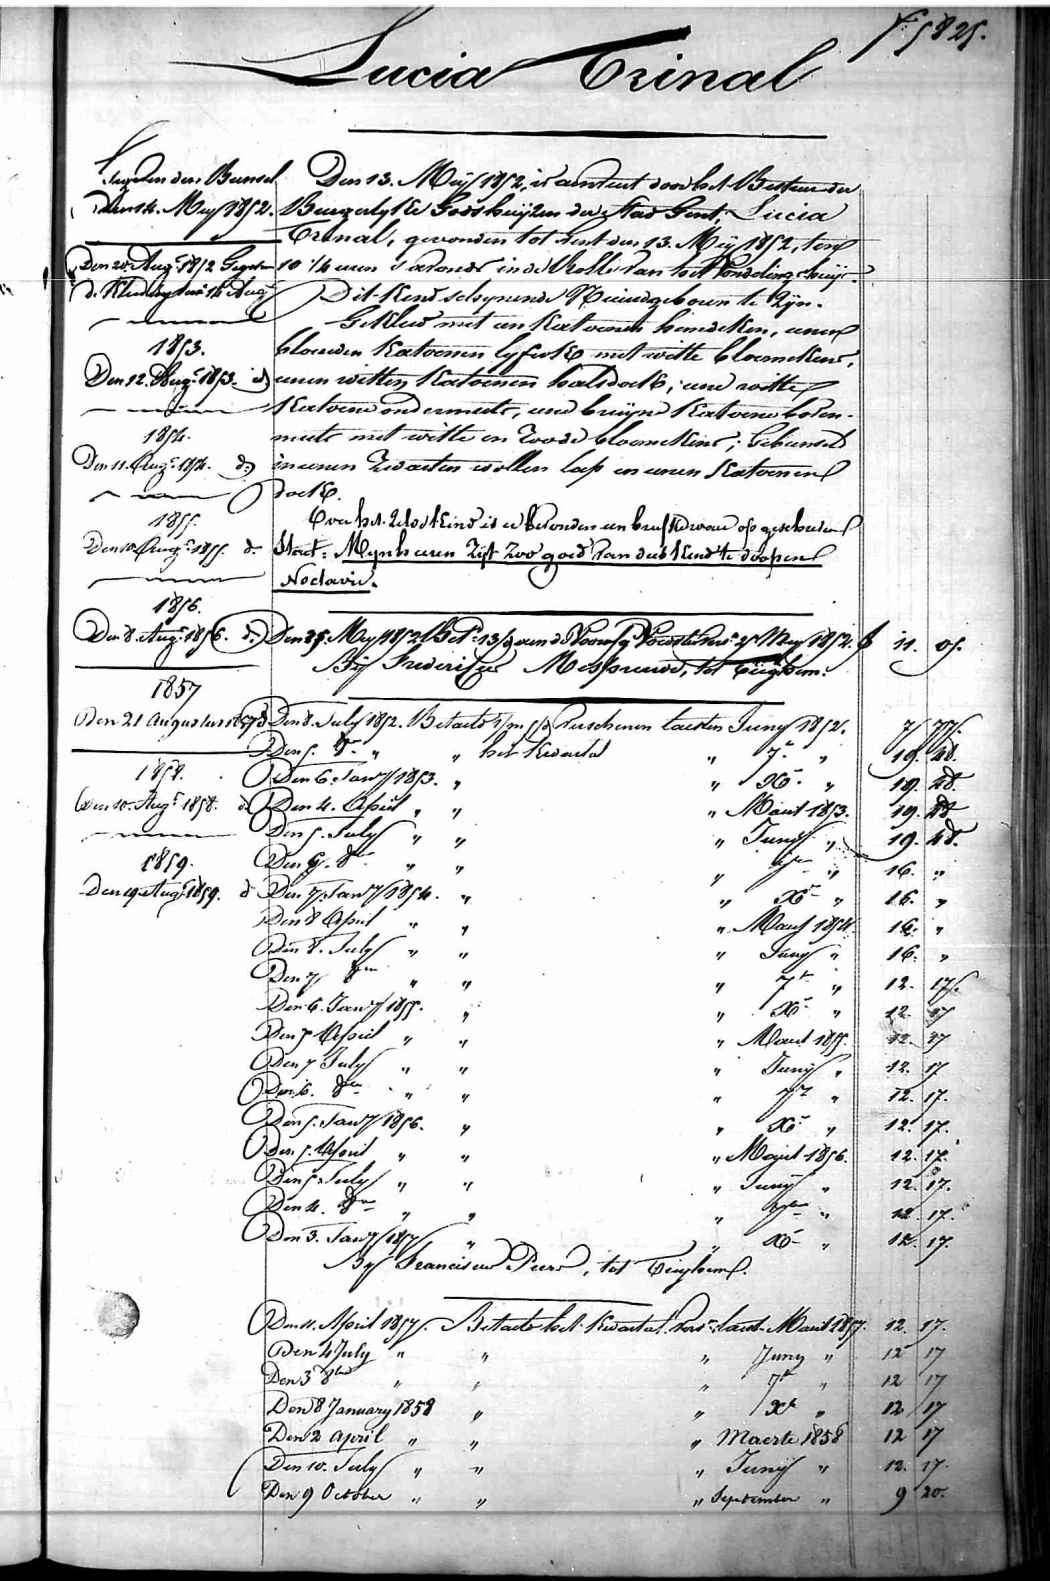 F° 5825.
Lucia Trinal
Gegeven den Bunsel
Den 14. Meij 1852.
Den 20. Aug.s 1852 Gegeven
de Kleeding van 14 Aug.
1853.
Den 12. Aug.s 1853. id
1854.
Den 11. Aug.s 1854. d.
1855.
Den 10. Aug.s 1855. d.
1856.
Den 8. Aug.s 1856. d.
1857
Den 21 Augustus 1857 d
1858.
Den 10. Aug.s 1858. d
1859.
Den 19 Aug.s 1859. d
Den 13. Meij 1852, is aenveert door het Bestuer der
Burgerlyke Godshuijzen der Stad Gent, Lucia
Trinal, gevonden tot Gent den 13. Meij 1852, ten
10 1/4 uren 's avonds in de Rolle van het Vondelinghuijs.
Dit Kind schynende Nieuwgeboren te Zyn.
Gekleed met een Katoenen hemdeken, eenen
blauwen Katoenen lyfrok met witte bloemekens,
eenen witten Katoenen halsdoek, eene witte
Katoene ondermuts, eene bruijne Katoene boven-
muts met witte en Roode bloemekens; Gebunseld
in eenen Zwarten wollen lap en eenen Katoenen
doek.
Over het Zelve Kind is er bevonden een briefken waer op geschreven
Staet: Mynheeren Zyt Zoo goed van dees Kind te doopen
Noctavie.
Den 25. Mey 1852 Bet. 13/ 25 Mey 1852. f 11. 05.
By Fredericus Messeeuwe, tot Tieghem.
Den 8. July 1852. Betaelt Verschenen laesten Juny 1852. 7 77.
Den 5. 8bre " " het Kwartael " 7bre " 19. 48.
Den 6. Janry 1853. " " Xbre " 19. 48.
Den 4. April " " " Maert 1853. 19. 48
Den 5. July " " " Juny " 19. 48.
Den 9. 8bre " " " 7bre " 16. "
Den 7. Janry 1854. " " Xbre " 16. "
Den 8 April " " " Maert 1854. 16. "
Den 8. July " " " Juny " 16. "
Den 7 8bre " " " 7bre " 12. 17.
Den 6. Janry 1855. " " Xbre " 12. 17
Den 7 April " " " Maert 1855. 12. 17
Den 7 July " " " Juny " 12. 17
Den 6. 8bre " " " 7bre " 12. 17.
Den 5. Janry 1856. " " Xbre " 12. 17.
Den 5. April " " " Maert 1856. 12. 17.
Den 5. July " " " Juny " 12. 17.
Den 4. 8bre " " " 7bre " 12. 17.
Den 3. Janry 1857 " " Xbre " 12. 17.
By Franciscus Peers, tot Tieghem.
Den 11. April 1857. Betaelt het Kwartael Vers. laest. Maert 1857. 12. 17.
Den 4 July " " " Juny " 12 17
Den 3 8bre " " " 7bre " 12 17
Den 8 January 1858 " " Xbre " 12 17
Den 2 April " " " Maerte 1858 12 17
Den 10. July " " " Juny " 12. 17.
Den 9 October " " " September " 9 20.